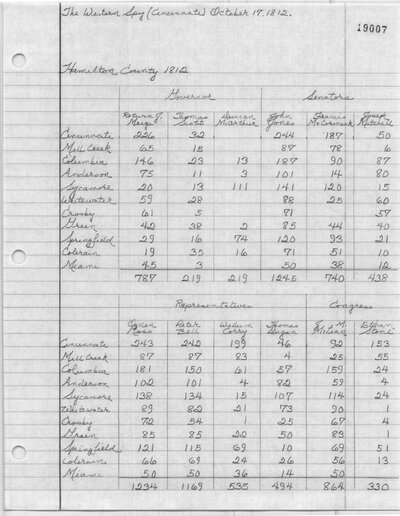 The Western Spy (Cincinnati) October 17, 1812.
19007
Hamilton County 1812
Governor Senators
Return J. Meigs Thomas Scott Duncan McArthur John Jones Francis McCormick Joseph Mitchell
Cincinnate 226 32 244 187 50
Mill Creek 65 15 87 78 6
Columbia 146 23 13 187 90 87
Anderson 75 11 3 101 14 80
Sycamore 20 13 111 141 120 15
Whitewater 59 28 88 25 60
Crosby 61 5 71 57
Green 42 38 2 85 44 40
Springfield 29 16 74 120 93 21
Colerain 19 35 16 71 51 10
Miami 45 3 50 38 12
787 219 219 1245 740 438
Representatives Congress
Ogden Ross Peter Bell William Corry Thomas Dugan J. M. McLean Ethan Stone
Cincinnate 243 242 199 46 92 153
Mill Creek 87 87 83 4 25 55
Columbia 181 150 61 57 159 24
Anderson 102 101 4 82 59 4
Sycamore 138 134 15 107 114 24
Whitewater 89 82 21 73 90 1
Crosby 72 54 1 25 67 4
Green 85 85 22 50 83 1
Springfield 121 115 69 10 69 51
Colerain 66 69 24 26 56 13
Miami 50 50 36 14 50
1234 1169 535 494 864 330